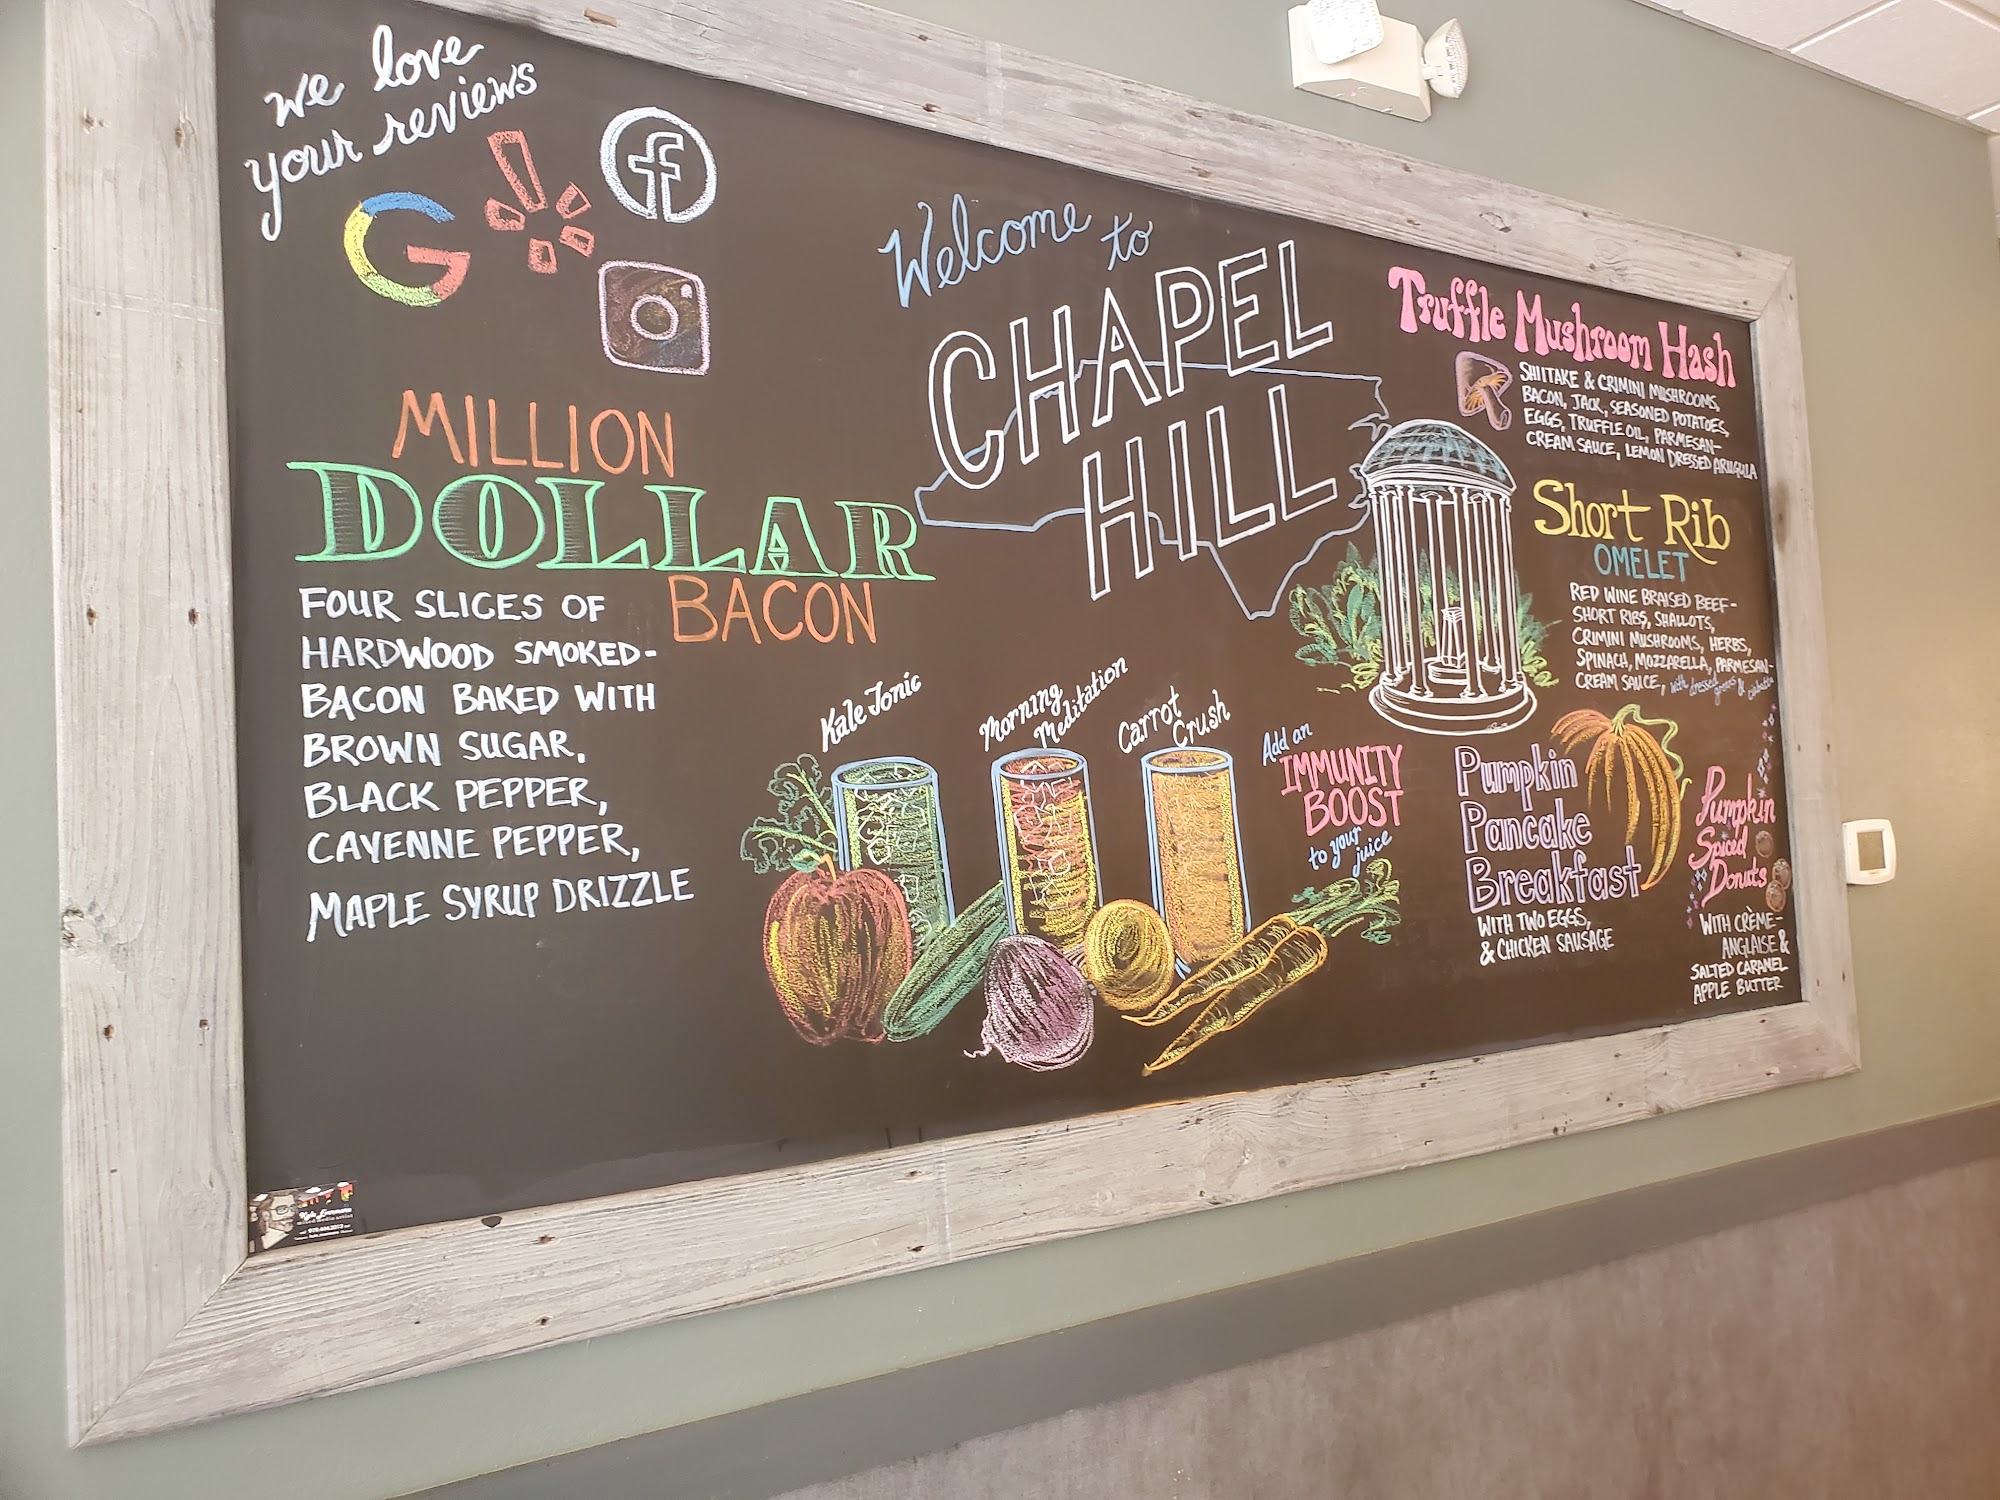 we love
your reviews
G
f
MILLION
DOLLAR
BACON
FOUR SLICES OF
HARDWOOD SMOKED-
BACON BAKED WITH
BROWN SUGAR,
BLACK PEPPER,
CAYENNE PEPPER,
MAPLE SYRUP DRIZZLE
Welcome to
CHAPEL
HILL
Kale Tonic
Morning
Meditation
Carrot
Crush
Add an
IMMUNITY
BOOST
to your
juice
Truffle Mushroom Hash
SHIITAKE & CRIMINI MUSHROOMS,
BACON, JACK, SEASONED POTATOES,
EGGS, TRUFFLE OIL, PARMESAN-
CREAM SAUCE, LEMON DRESSED ARUGULA
Short Rib
OMELET
RED WINE BRAISED BEEF-
SHORT RIBS, SHALLOTS,
CRIMINI MUSHROOMS, HERBS,
SPINACH, MOZZARELLA, PARMESAN-
CREAM SAUCE, with dressed greens & ciabatta
Pumpkin
Pancake
Breakfast
WITH TWO EGGS,
& CHICKEN SAUSAGE
Pumpkin
Spiced
Donuts
WITH CRÈME-
ANGLAISE &
SALTED CARAMEL
APPLE BUTTER